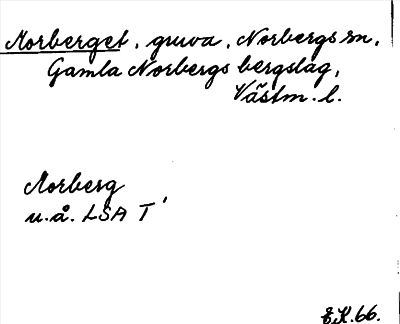 Norberget, gruva, Norbergs sn,
Gamla Norbergs bergslag,
Västm. l.
Norberg
u.å. LSA T'
E.K. 66.